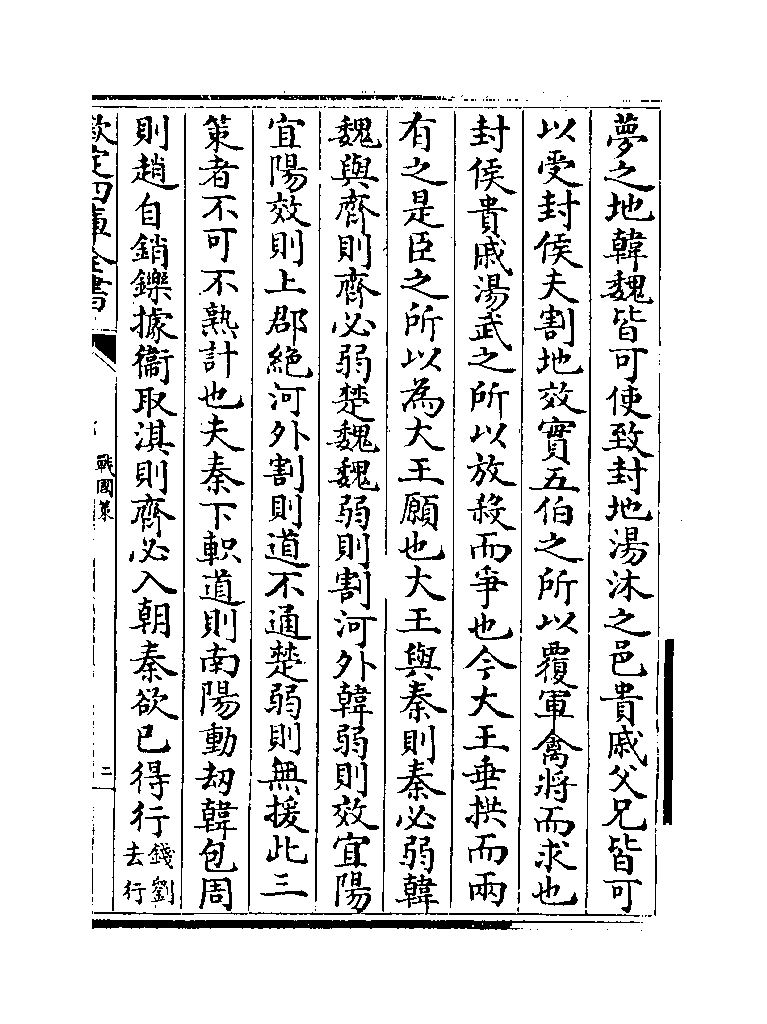 夢之地韓魏皆可使致封地湯沐之邑貴戚父兄皆可
以受封侯夫割地效實五伯之所以覆軍禽將而求也
封侯貴戚湯武之所以放殺而爭也今大王垂拱而兩
有之是臣之所以為大王願也大王與秦則秦必弱韓
魏與齊則齊必弱楚魏魏弱則割河外韓弱則效宜陽
宜陽效則上郡絶河外割則道不通楚弱則無援此三
策者不可不熟計也夫秦下軹道則南陽動刼韓包周
則趙自銷鑠據衞取淇則齊必入朝秦欲已得行錢劉去行
欽定四庫全書
戰國策
二